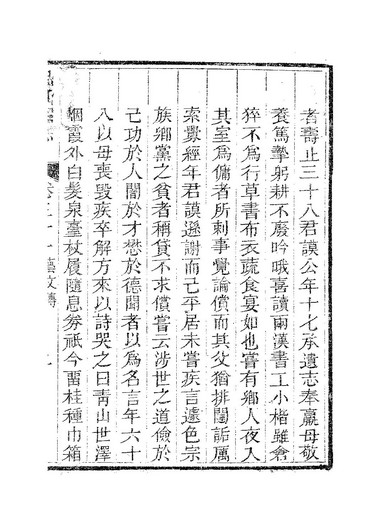 者壽止三十八君謨公年十七承遺志奉嬴母敬
養篤摯躬耕不廢吟哦喜讀兩漢書工小楷雖倉
猝不為行草書布衣蔬食宴如也嘗有鄉人夜入
其室為傭者所刺事覺論償而其父猶排闥詬厲
索數經年君謨遜謝而已平居未嘗疾言遽色宗
族鄉黨之貧者稱貸不求償嘗云涉世之道儉於
己功於人闇於才懋於德聞者以為名言年六十
入以母喪毀疾卒解方來以詩哭之曰靑山世澤
烟霞外白髮泉臺杖履隨息劵祇今畱桂種巾箱
卷三十一 藝文傳